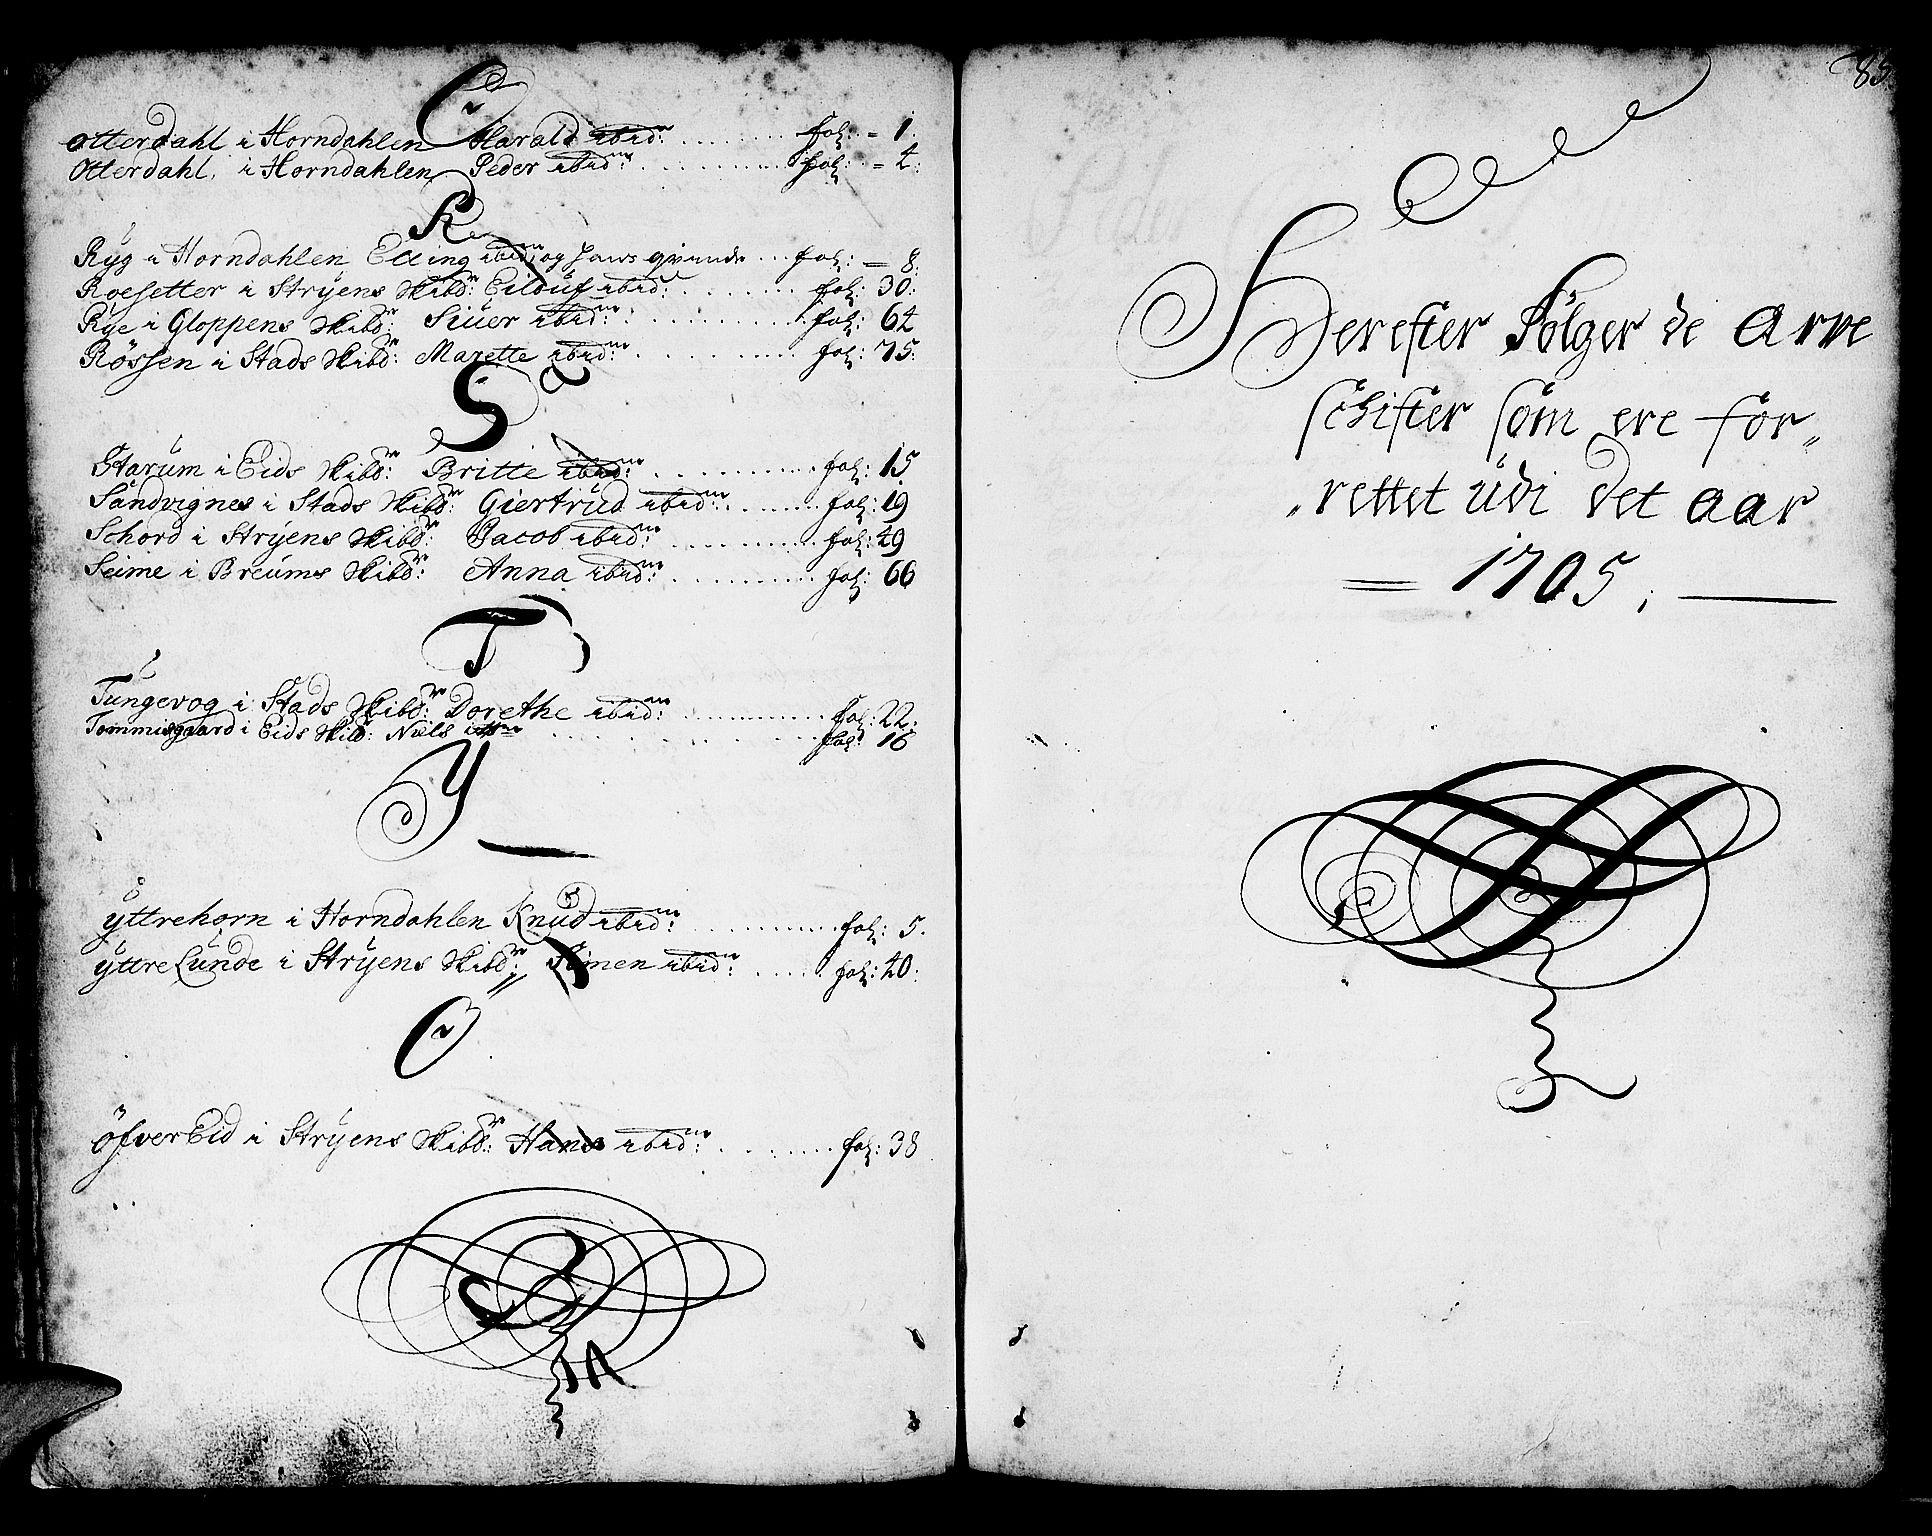 O
Otterdahl i Horndahlen Harald ibid: fol: = 1.
Otterdahl, i Horndahlen Peder ibid: fol: = 4:
R
Ryg i Horndahlen Elling ibid: og hans qvinde fol: = 8:
Roesetter i Stryens Skibd: Eiluf ibid: fol: 30:
Rye i Gloppens Skibd: Siüer ibid: fol: 64
Rössen i Stads Skibd: Marette ibid: fol: 75:
S
Starüm i Eids Skibd: Britte ibid: fol: 15
Sandvignes i Stads Skibd: Giertrüd ibid: fol: 19
Schord i Stryens Skibd: Jacob ibid: fol: 49
Seime i Breüms Skibd: Anna ibid: fol: 66
T
Tüngevog i Stads Skibd: Dorethe ibid: fol: 22:
Tommisgaard i Eids Skibd: Niels fol: 16
Y
Yttrehorn i Horndahlen Knüd ibid: fol: 5.
Yttre Lünde i Stryens Skibd: Simen ibid: fol: 40:
Ö
Öfver Eid i Stryens Skibd: Hans ibid: fol: 38
85
Herefter Fölger de Arve
schifter som ere for„
„rettet üdi det aar
= 1705. —